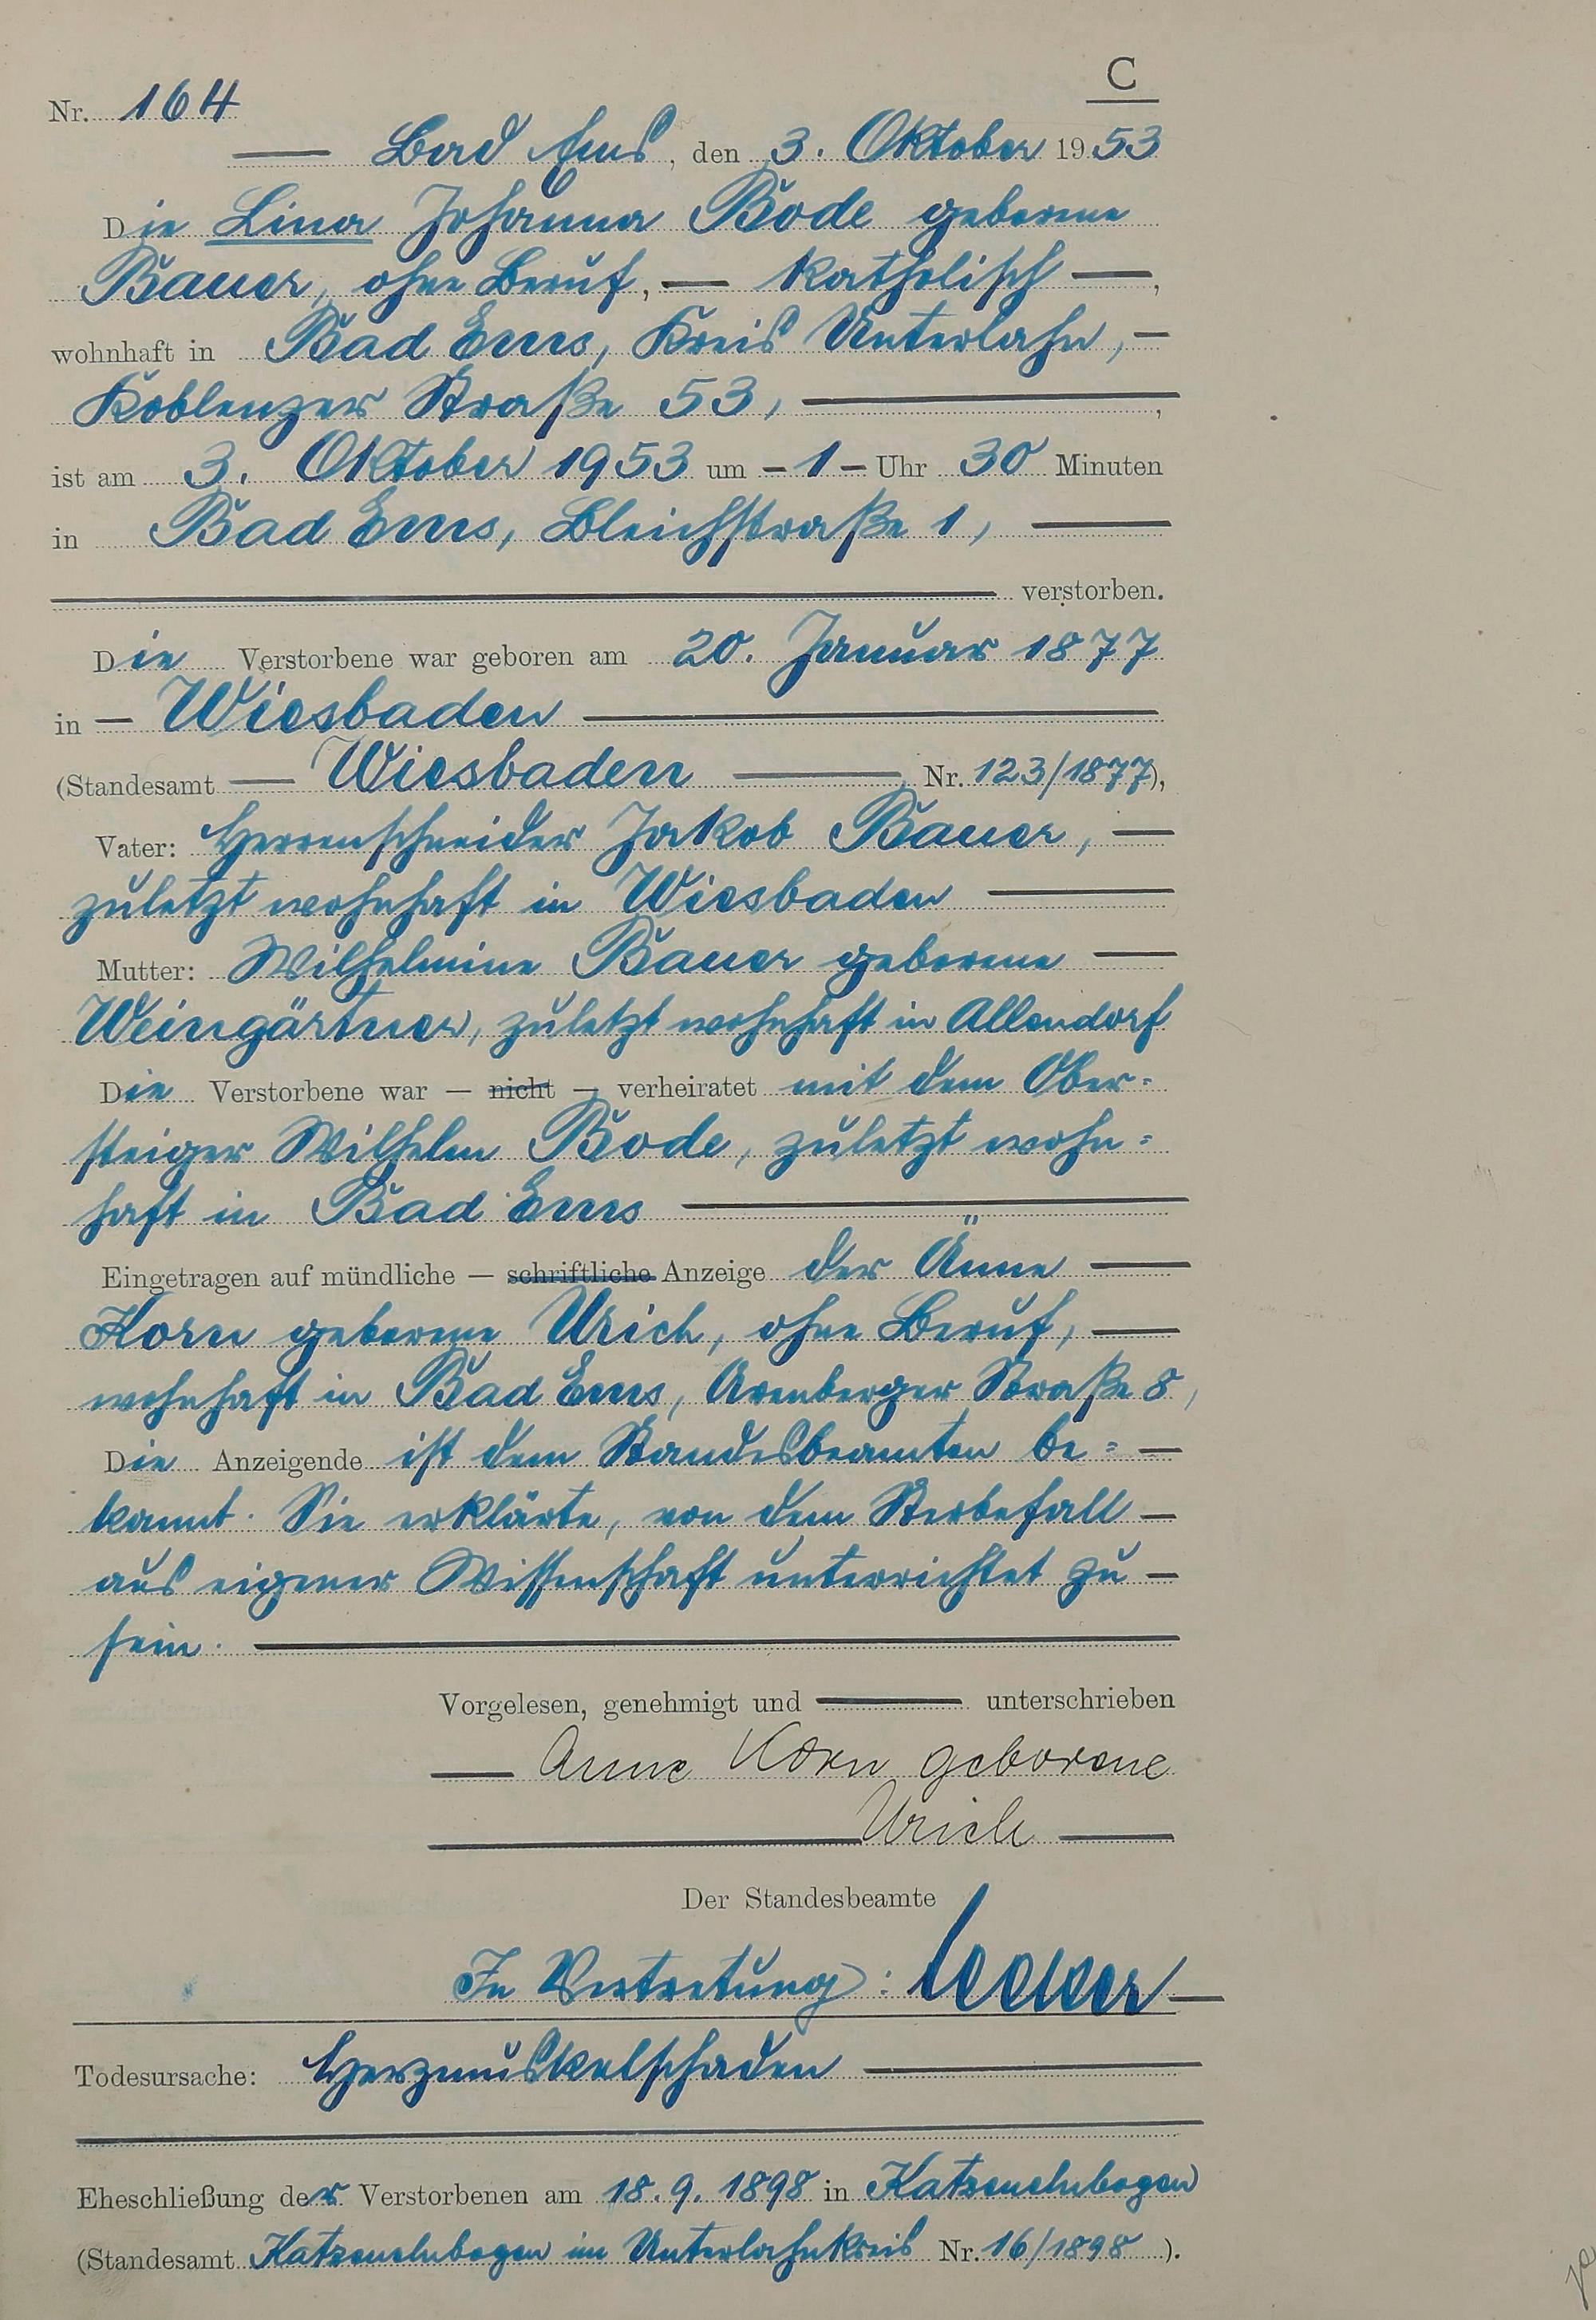 C
Nr. 164
— Bad Ems, den 3. Oktober 1953
Die Lina Johanna Bode geborene
Bauer, ohne Beruf, — katholisch —,
wohnhaft in Bad Ems, Kreis Unterlahn, —
Koblenzer Straße 53, —,
ist am 3. Oktober 1953 um – 1 – Uhr 30 Minuten
in Bad Ems, Bleichstraße 1, —
— verstorben.
Die Verstorbene war geboren am 20. Januar 1877
in — Wiesbaden —
(Standesamt — Wiesbaden — Nr. 123/1877),
Vater: Herrenschneider Jakob Bauer, —
zuletzt wohnhaft in Wiesbaden —
Mutter: Wilhelmine Bauer geborene —
Weingärtner, zuletzt wohnhaft in Allendorf
Die Verstorbene war — nicht — verheiratet mit dem Ober=
steiger Wilhelm Bode, zuletzt wohn=
haft in Bad Ems —
Eingetragen auf mündliche — schriftliche Anzeige der Änne —
Korn geborene Urich, ohne Beruf, —
wohnhaft in Bad Ems, Arenberger Straße 8,
Die Anzeigende ist dem Standesbeamten be= —
kannt. Sie erklärte, von dem Sterbefall —
aus eigener Wissenschaft unterrichtet zu —
sein. —
Vorgelesen, genehmigt und — unterschrieben
— Anne Korn geborene
— Urich —
Der Standesbeamte
In Vertretung: —
Todesursache: Herzmuskelschaden —
Eheschließung der Verstorbenen am 18.9.1898 in Katzenelnbogen
(Standesamt Katzenelnbogen im Unterlahnkreis Nr. 16/1898 ).